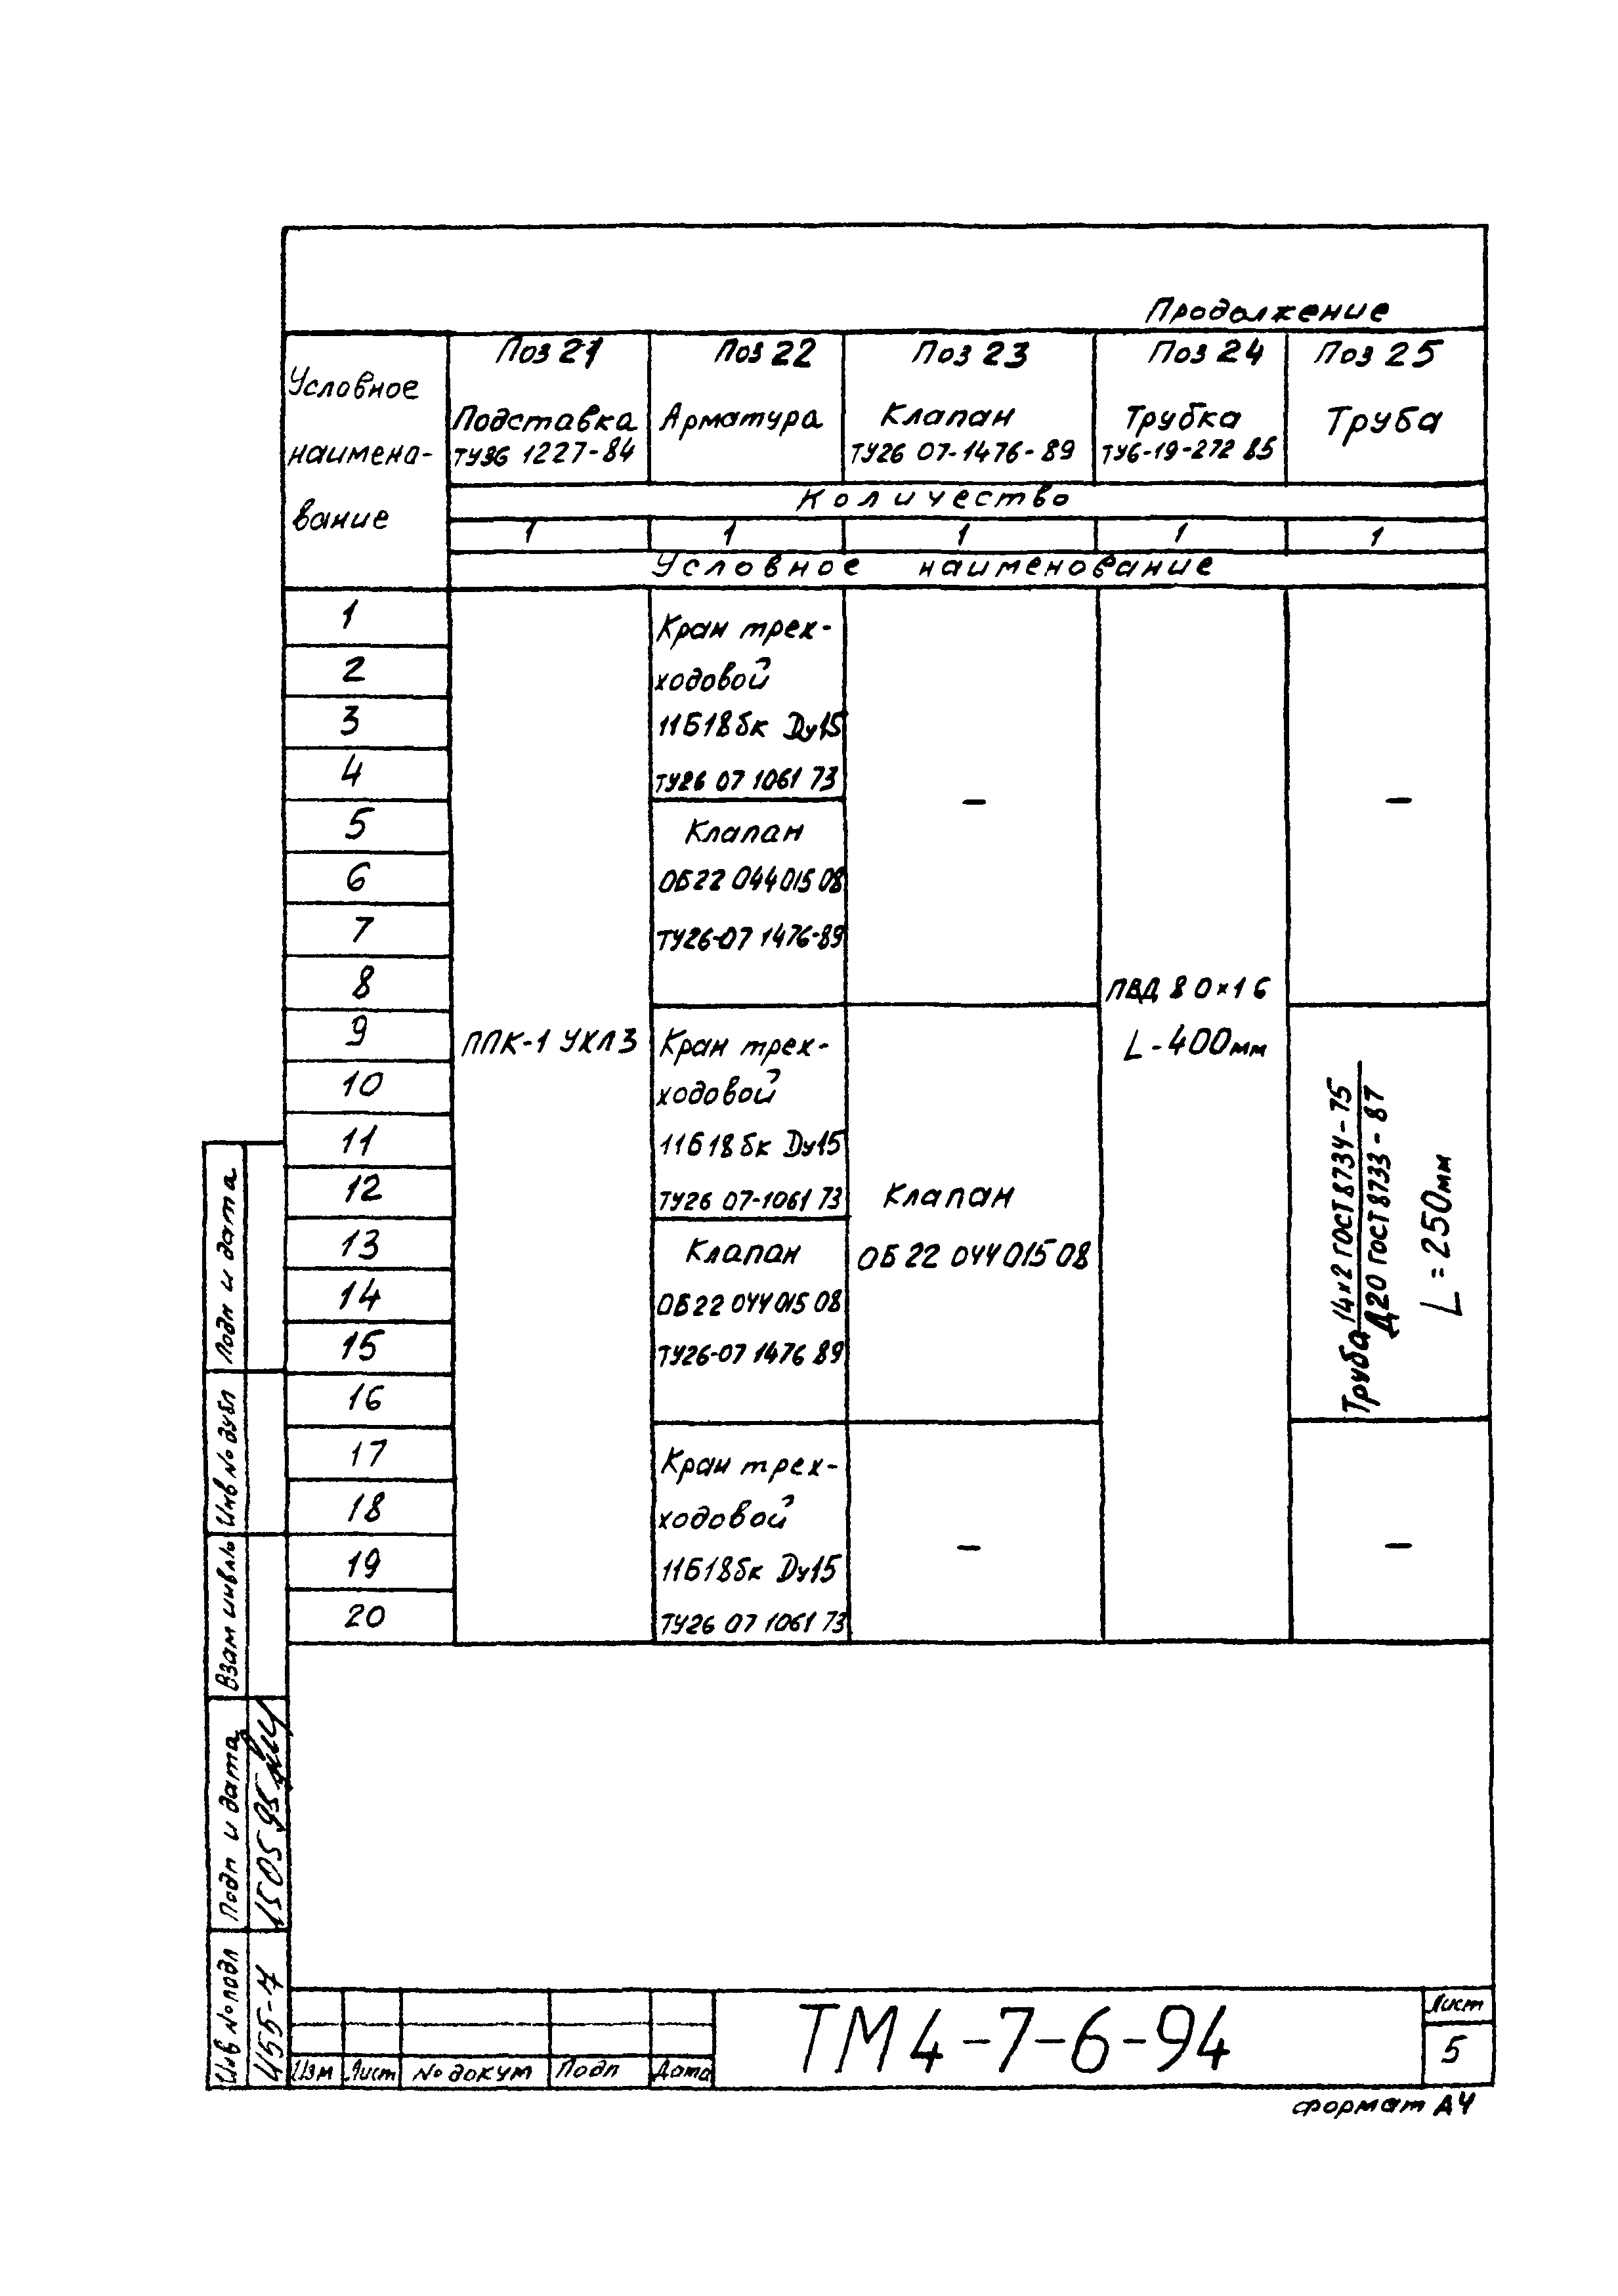 Продолжение
Условное
наимено-
вание
Поз 21
Подставка
ТУ36 1227-84
Поз 22
Арматура
Поз 23
Клапан
ТУ26 07-1476-89
Поз 24
Трубка
ТУ6-19-272 85
Поз 25
Труба
Количество
1 1 1 1 1
Условное наименование
1
2
3
4
5
6
7
8
9
10
11
12
13
14
15
16
17
18
19
20
ППК-1 УХЛ3
Кран трех-
ходовой
11Б18бк Dу15
ТУ26 07 1061 73
Клапан
ОБ22 044 015 08
ТУ26-07 1476-89
Кран трех-
ходовой
11Б18бк Dу15
ТУ26 07-1061 73
Клапан
ОБ22 044 015 08
ТУ26-07 1476 89
Кран трех-
ходовой
11Б18бк Dу15
ТУ26 07 1061 73
–
Клапан
ОБ22 044 015 08
–
ПВД 8 0×1 6
L-400мм
–
Труба 14×2 ГОСТ 8734-75
Д20 ГОСТ 8733-87
L=250мм
–
Подп и дата
Инв № дубл
Взам инв №
Подп и дата
15 05 95
Инв № подл
455-4
Изм Лист № докум Подп Дата
ТМ4-7-6-94
Лист
5
формат А4